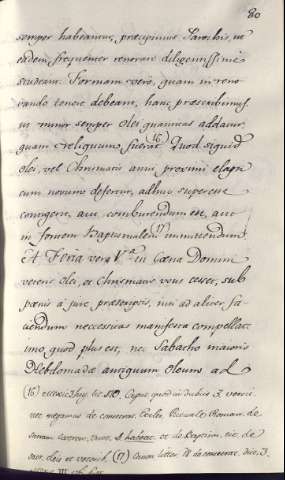 80
semper habeantur, præcipimus Parochis, ut
eadem frequenter renovare diligentissimè
studeant. Formam vero, quam in reno
vando tenere debeant, hanc præscribimus,
ut minor semper Olei quantitas addatur,
quam reliquum fuerat (16) Quod si quid
olei, vel Chrismatis anni proximi elapsi
cum novum defertur, adhuc superesse
contigerit, aut comburendum est, aut
in fontem Baptismalem (17) immittendum.
A Feria vero V.ta in Cœna Domini
veteris olei, et Chrismatis usus cesset, sub
pœnis à jure præscriptis, nisi ad aliter fa
ciendum necessitas manifesta compellat
imo quod plus est, nec Sabatho maioris
Hebdomadæ antiquum Oleum ad
(16) Caput quod in dubiis 3. versic.
de consecrat. Eccles. Rituale Roman. de
Sacram. habeat et de Baptism. tit. de
sac. oleis (17) Canon litteris de consecrat. dist. 3.